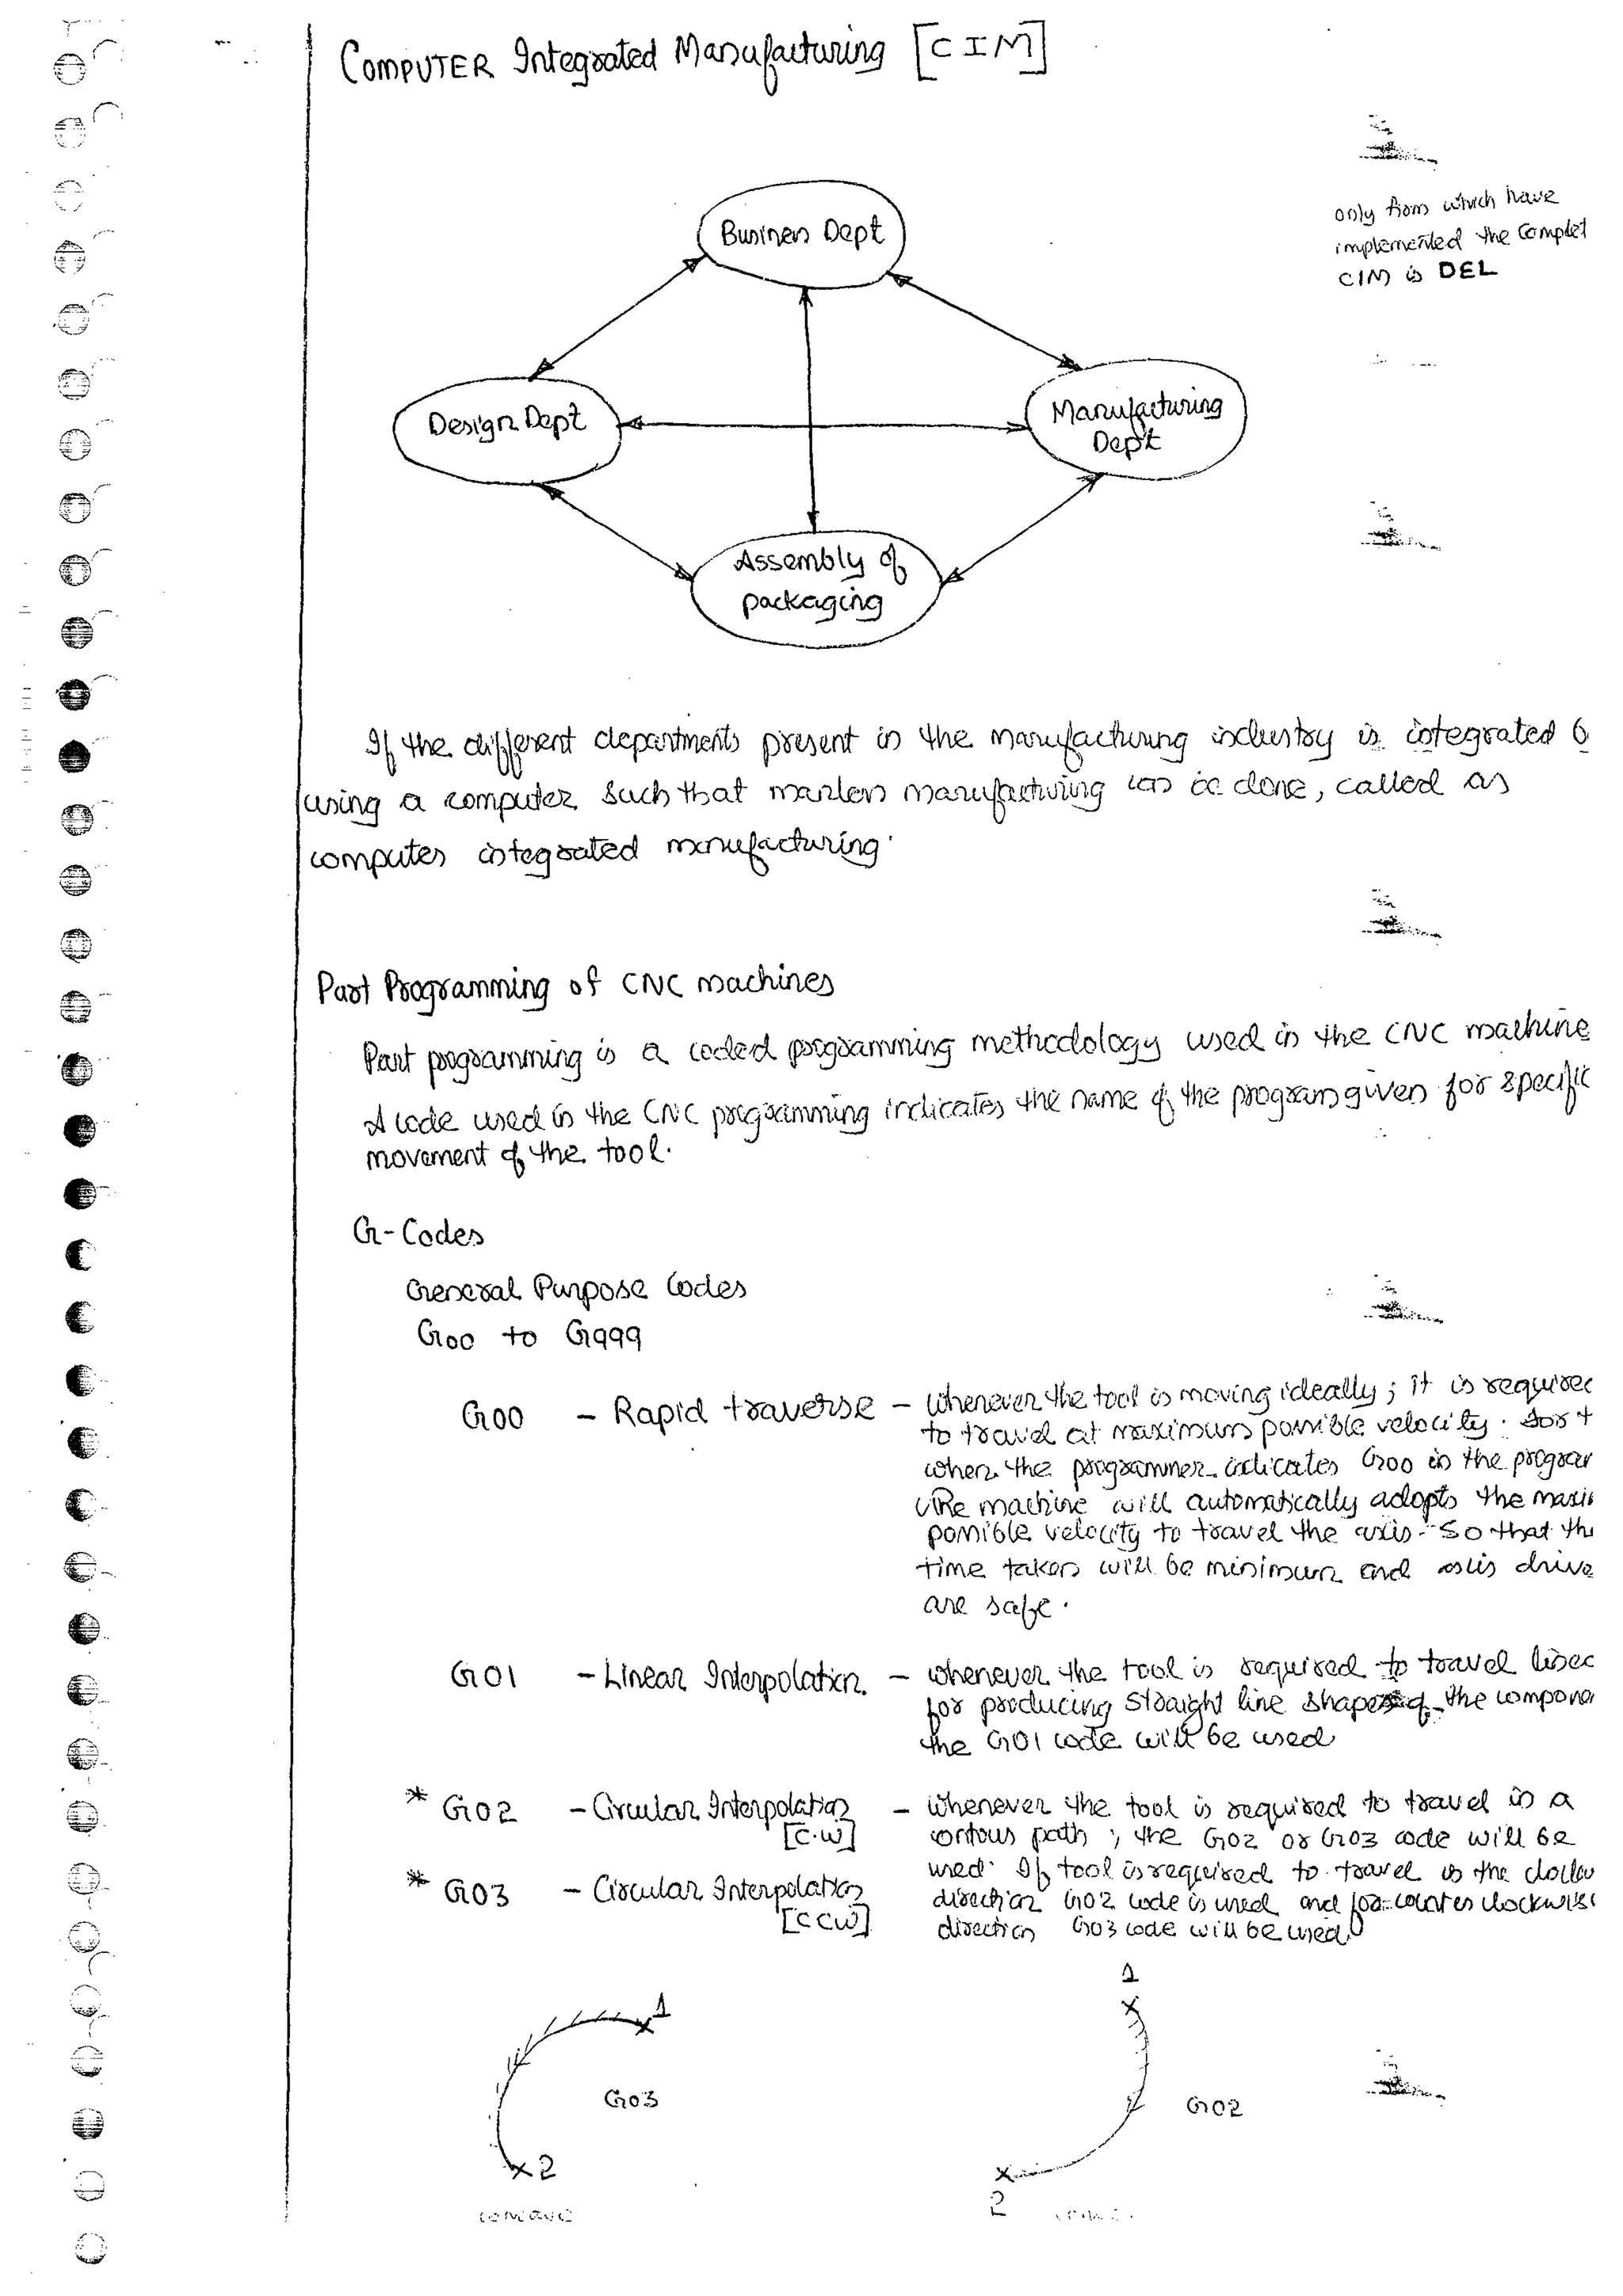 COMPUTER Integrated Manufacturing [CIM]
Business Dept
only firm which have
implemented the complet
CIM is DEL
Design Dept
Manufacturing
Dept
Assembly of
packaging
If the different departments present in the manufacturing industry is integrated b
using a computer such that manless manufacturing can be done, called as
computer integrated manufacturing.
Part Programming of CNC machines
Part programming is a coded programming methodology used in the CNC machine
A code used in the CNC programming indicates the name of the program given for specific
movement of the tool.
G-Codes
General Purpose Codes
G00 to G999
G00 - Rapid traverse - whenever the tool is moving ideally; it is requirec
to travel at maximum possible velocity. for t
when the programmer indicates G00 in the prograr
the machine will automatically adopts the maxi
possible velocity to travel the axis. So that the
time taken will be minimum and axis drive
are safe.
G01 - Linear Interpolation. - whenever the tool is required to travel linec
for producing straight line shapes of the compone
the G01 code will be used
* G02 - Circular Interpolation - whenever the tool is required to travel in a
[C.W] contous path, the G02 or G03 code will be
used. If tool is required to travel in the clockw
* G03 - Circular Interpolation direction G02 code is used and for counter clockwis
[CCW] direction G03 code will be used
1
1
G03
G02
2
2
concave